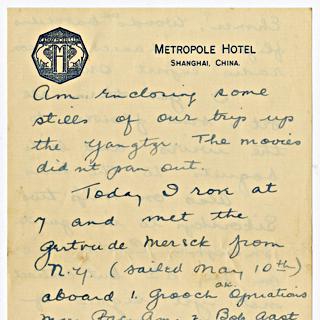 METROPOLE HOTEL
SHANGHAI, CHINA.
Am enclosing some
stills of our trip up
the Yangtze The movies
didn't pan out.
Today I rose at
7 and met the
Gertrude Mersck from
N.Y. (sailed May 10th)
aboard 1. Grooch
Operations